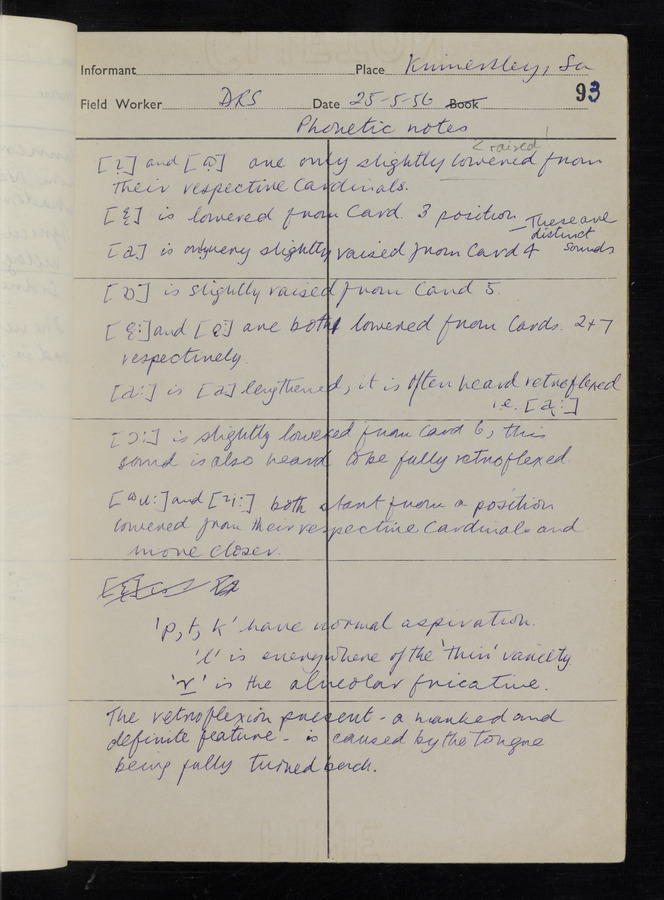 Informant Place Kinnersley, Sa
Field Worker DRS Date 25-5-56 Book 93
Phonetic notes
? raised!
[ɪ̞] and [ɒ̞] are only slightly lowered from
their respective Cardinals.
[ɛ̞] is lowered from Card. 3 position
— These are
distinct
sounds
[a] is only very slightly raised from Card 4
[ɒ] is slightly raised from Card 5.
[e̞:] and [o̞:] are both lowered from Cards. 2+7
respectively.
[a:] is [a] lengthened, it is often heard retroflexed
i.e. [ạ:]
[ɔ:] is slightly lowered from Card 6, this
sound is also heard to be fully retroflexed.
[ᵚu:] and [ɪi:] both start from a position
lowered from their respective Cardinals and
move closer.
'p, t, k' have normal aspiration.
'l' is everywhere of the 'thin' variety.
'r' is the alveolar fricative.
The retroflexion present - a marked and
definite feature - is caused by the tongue
being fully turned back.